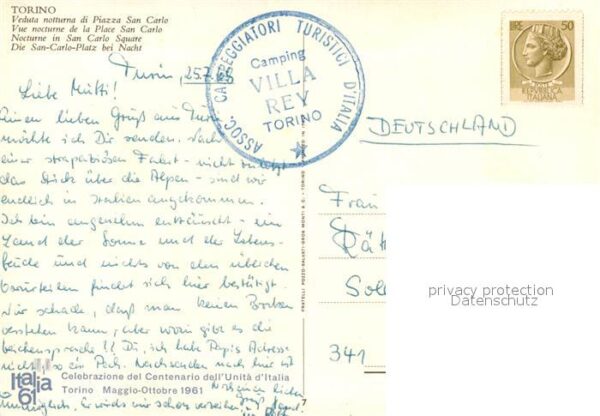 TORINO
Veduta notturna di Piazza San Carlo
Vue nocturne de la Place San Carlo
Nocturne in San Carlo Square
Die San-Carlo-Platz bei Nacht
Turin, 25.7.65
ASSOC. CAMPEGGIATORI TURISTICI D'ITALIA
Camping
VILLA
REY
TORINO
LIRE 50
REPUBBLICA
ITALIANA
DEUTSCHLAND
Liebe Mutti!
Einen lieben Gruß aus Turin
möchte ich Dir senden. Nach
einer strapatiösen Fahrt - nicht zuletzt
das Stück über die Alpen - sind wir
endlich in Italien angekommen.
Ich bin angenehm enttäuscht - ein
Land der Sonne und der Lebens-
freude und nichts von den üblichen
Vorurteilen findet sich hier bestätigt.
Nur schade, daß man keinen Brocken
verstehen kann, aber wozu gibt es die
Zeichensprache!! Du, ich habe Papis Adresse
nicht, so ein Pech. Nachsenden nach hier ist
unmöglich. Er wird's mir schon verzeihen
Frau
Sol
341
privacy protection
Datenschutz
FRATELLI POZZO-SALVATI-GROS MONTI & C. - TORINO
Italia
61
Celebrazione del Centenario dell'Unità d'Italia
Torino Maggio-Ottobre 1961